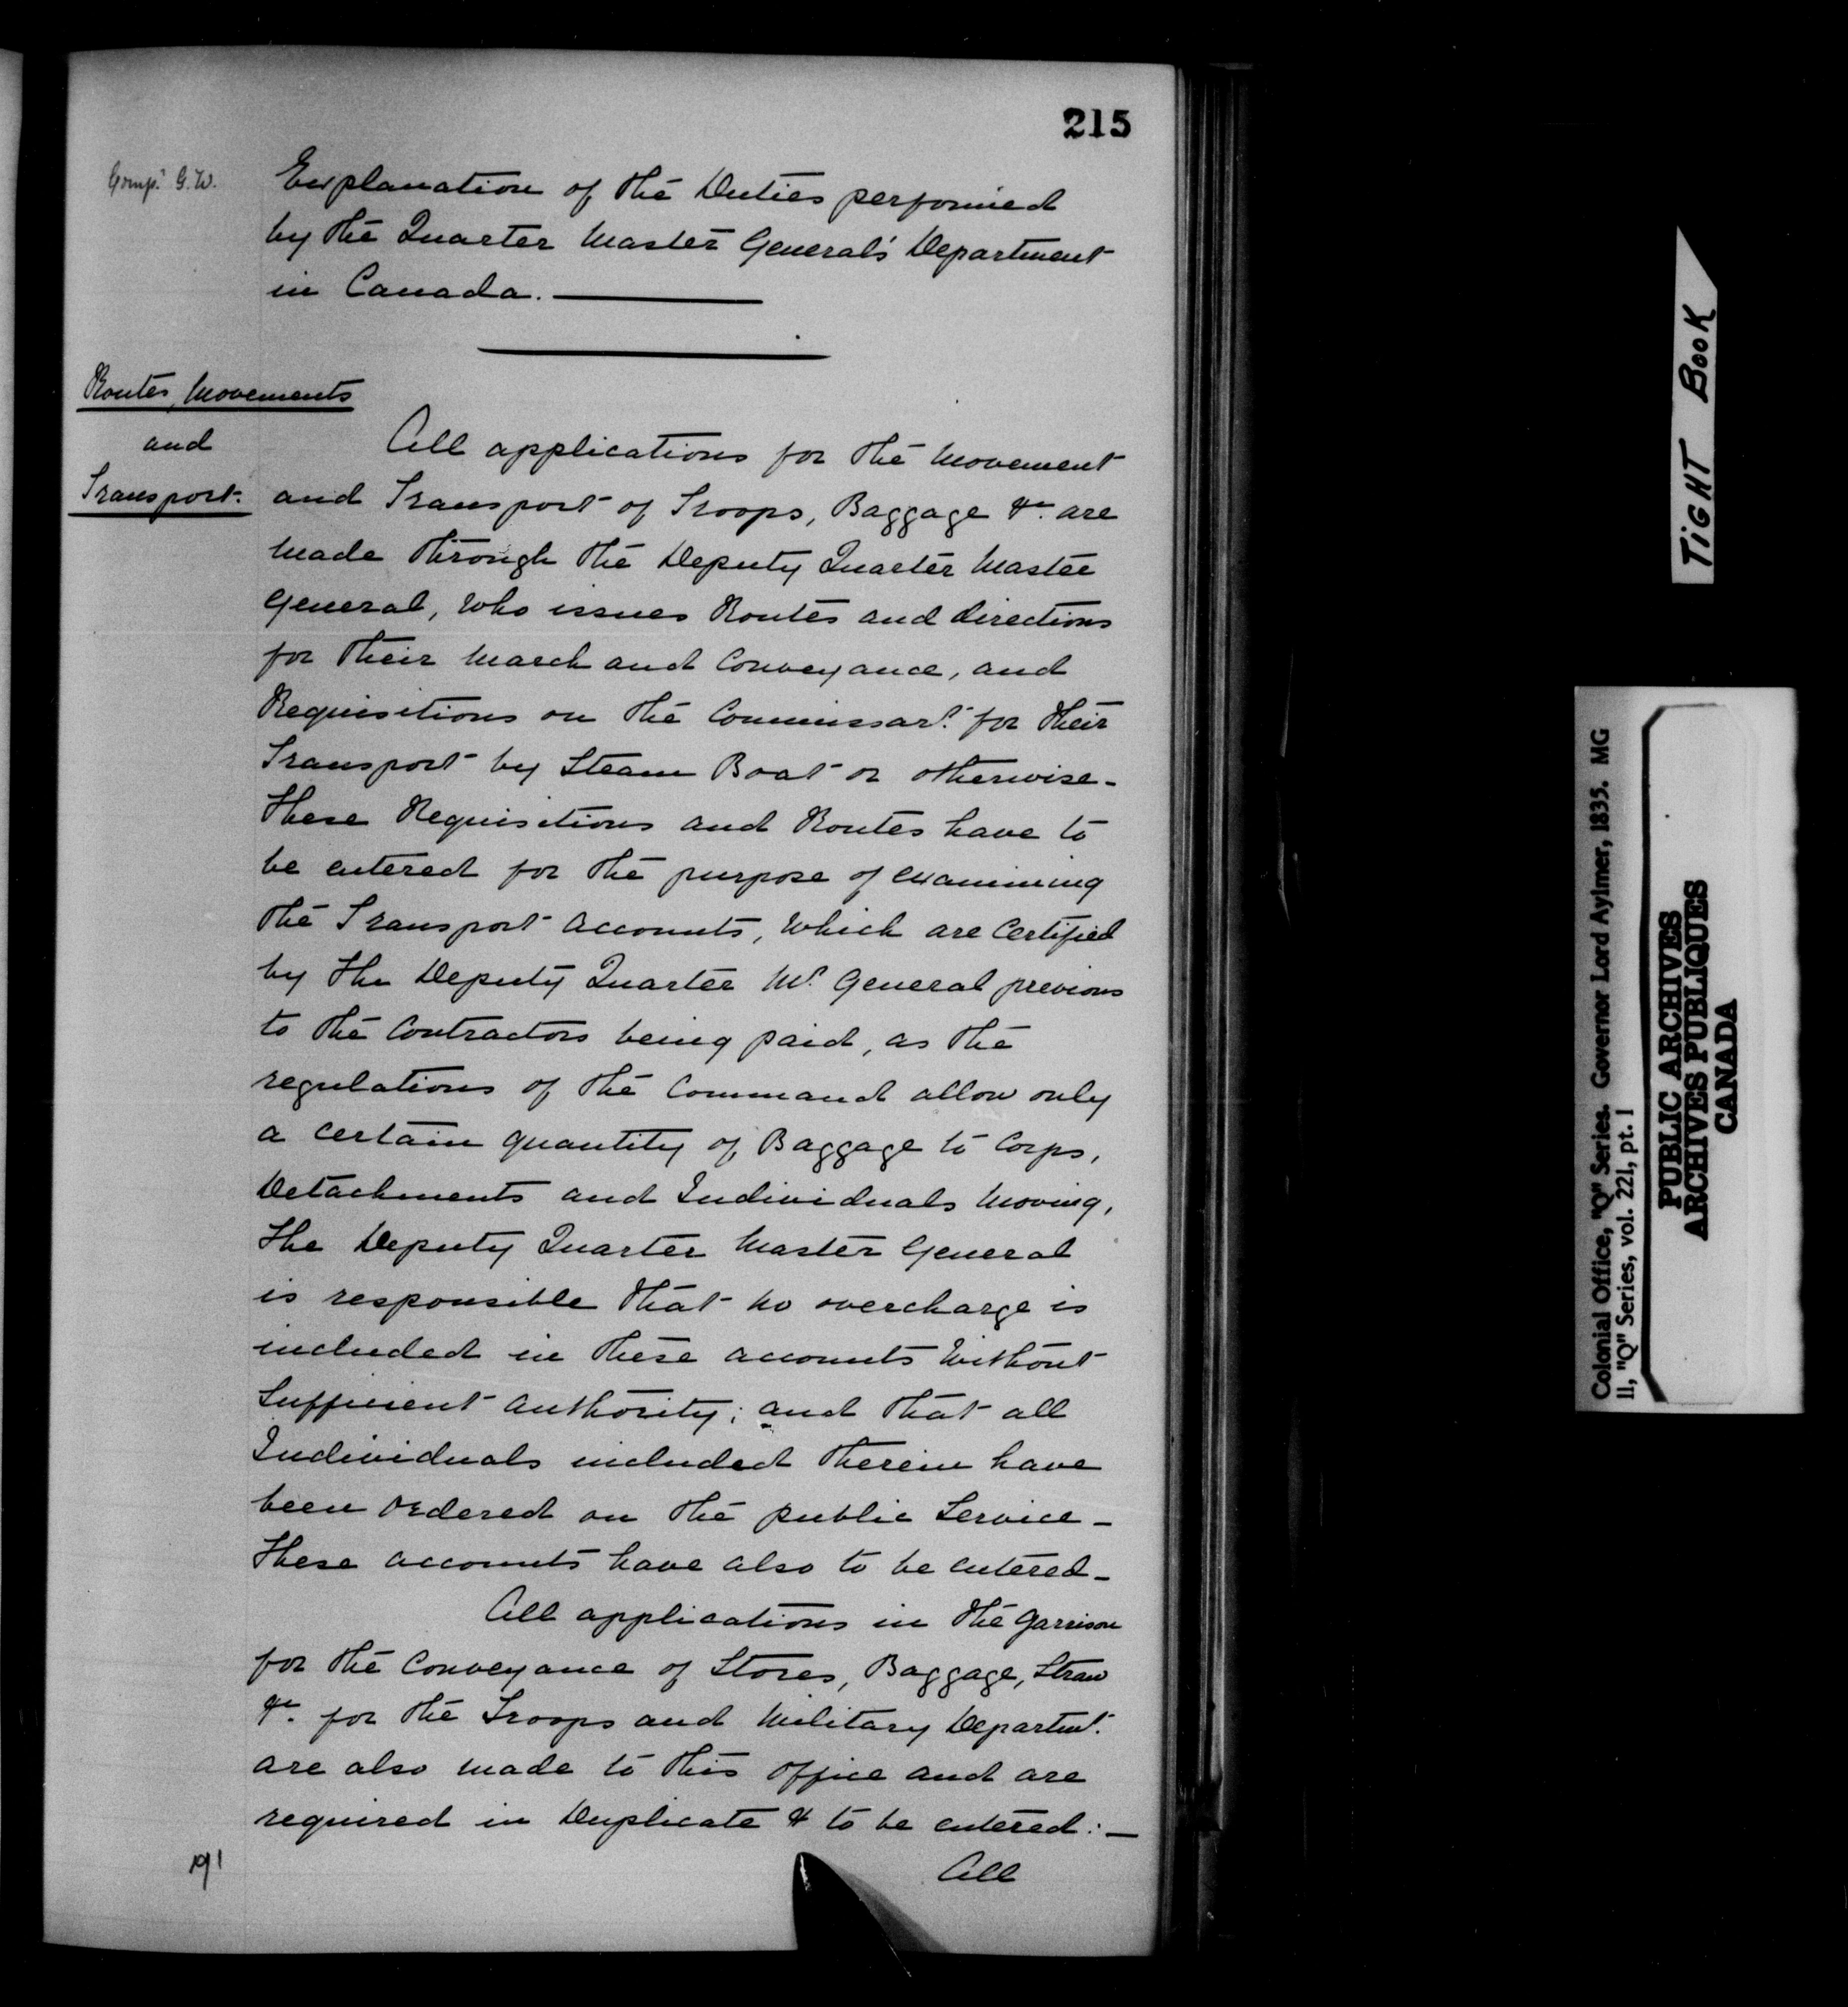 215
Comp.d G.W.
Explanation of the Duties performed
by the Quarter Master General's Department
in Canada.
Routes, Movements
and
Transport.
All applications for the Movement
and Transport of Troops, Baggage &c. are
made through the Deputy Quarter Master
General, who issues Routes and directions
for their March and Conveyance, and
Requisitions on the Commissart. for their
Transport by Steam Boat or otherwise -
These Requisitions and Routes have to
be entered for the purpose of examining
the Transport accounts, which are Certified
by the Deputy Quarter Mr. General previous
to the Contractors being paid, as the
regulations of the Command allow only
a certain quantity of Baggage to Corps,
Detachments and Individuals moving,
The Deputy Quarter Master General
is responsible that no overcharge is
included in these accounts without
sufficient authority; and that all
Individuals included therein have
been ordered on the public Service -
These accounts have also to be entered -
All applications in the Garrison
for the Conveyance of Stores, Baggage, Straw
&c. for the Troops and Military Departmt.
are also made to this office and are
required in Duplicate & to be entered: -
All
191
TIGHT BOOK
Colonial Office, "Q" Series. Governor Lord Aylmer, 1835. MG
11, "Q" Series, vol. 221, pt. 1
PUBLIC ARCHIVES
ARCHIVES PUBLIQUES
CANADA